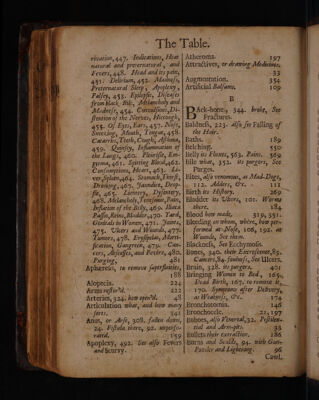 The Table.
rication, 447. Indications, Heat
natural and preternatural, and
Fevers, 448. Head and its pain,
451. Delirium, 452. Madness,
Preternatural Sleep, Apoplexy,
Palsey, 453. Epilepsie, Diseases
from black Bile, Melancholy and
Madness, 454. Convulsions, Di-
stention of the Nerves, Hiccough,
455. Of Eyes, Ears, 457. Nose,
Sneezing, Mouth, Tongue, 458.
Catarrhs, Teeth, Cough, Asthma,
459. Quinsey, Inflammation of
the Lungs, 460. Pleurisie, Em-
pyema, 461. Spitting Blood, 462.
Consumptions, Heart, 463. Li-
ver, Spleen, 464. Stomach, Thirst,
Drinking, 465. Jaundies, Drop-
sie, 467. Lientery, Dysentery,
468. Melancholy, Tenesmus, Pains,
Inflation of the Belly, 469. Iliaca
Passio, Reins, Bladder, 470. Yard,
Genitals in Women, 471. Joints,
475. Ulcers and Wounds, 477.
Tumors, 478. Erysipelas, Morti-
fication, Gangrene, 479. Can-
cers, Abscesses, and Fevers, 480.
Purging, 481
Aphæresis, to remove superfluities,
188
Alopecia. 224
Arms restor'd. 222
Arteries, 324. how open'd. 48
Articulation what, and how many
sorts. 341
Anus, or Arse, 308. fallen down,
24. Fistula there, 92. unperfo-
rated. 159
Apoplexy, 492. See also Fevers
and Scurvy.
Atheroma. 197
Attractives, or drawing Medicines.
33
Augmentation. 354
Artificial Balsams. 109
B
BAck-bone, 344. broke, See
Fractures.
Baldness, 223. also see Falling of
the Hair.
Baths. 189
Belching. 550
Belly its Fluxes, 563. Pains. 569
Bile what, 352. its purgers, See
Purges.
Bites, also venomous, as Mad-Dogs,
112. Adders, &c. 111
Birth its History. 269
Bladder its Ulcers, 101. Worms
there. 184
Blood how made. 319, 351.
Bleeding or whom, where, how per-
formed at Nose, 106, 192. at
Wounds, See them.
Blackness, See Ecchymosis.
Bones, 340. their Excrescence, 85.
Canvers, 84. foulness, See Ulcers.
Brain, 328. its purgers. 401
Bringing Women to Bed, 165.
Dead Birth, 167. to remove it,
170. Symptoms after Delivery,
as Weakness, &c. 174
Bronchotomia. 146
Bronchocele. 21, 197
Buboes, also Venereal, 32. Pestilen-
tial and Arm-pits. 33
Bullets their extraction. 186
Burns and Scalds, 94. with Gun-
Powder and Lightning. 96